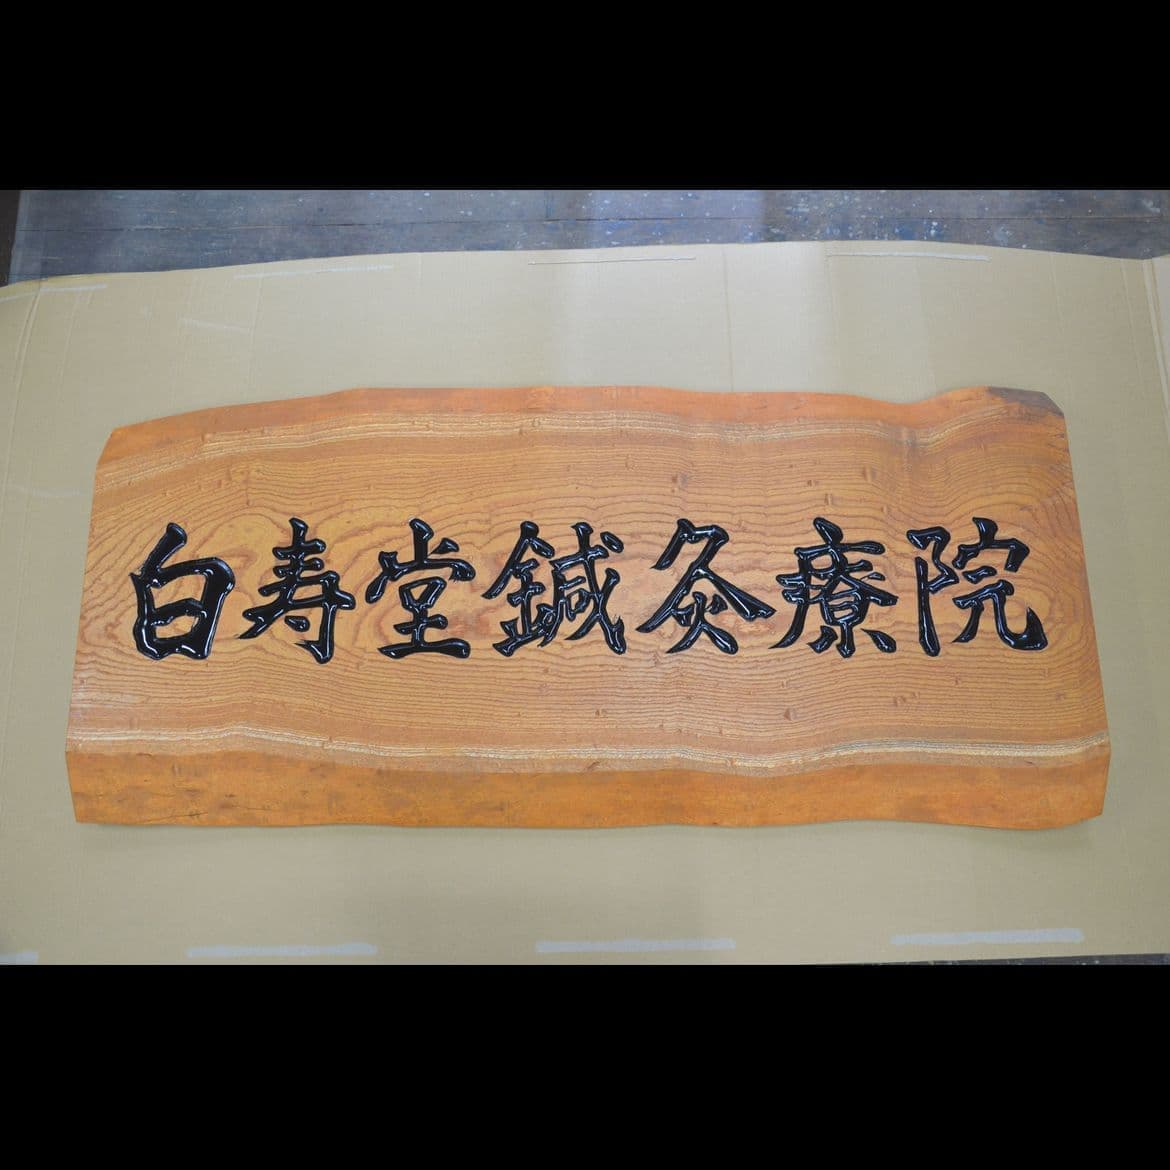 白寿堂鍼灸療院